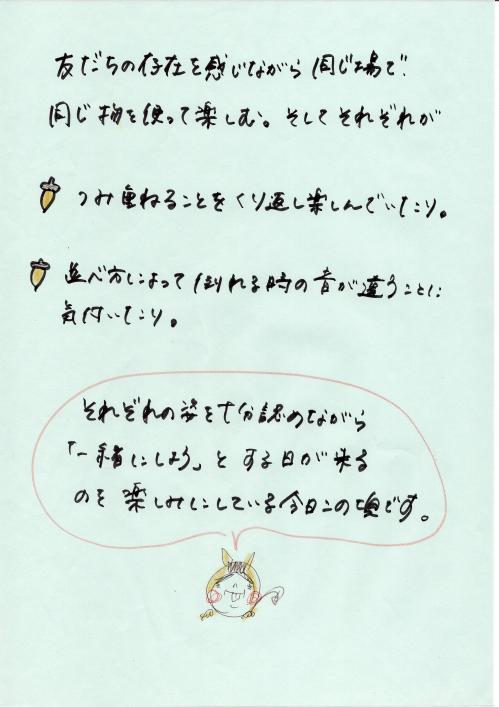 友だちの存在を感じながら同じ場で
同じ物を使って楽しむ。そしてそれぞれが
つみ重ねることをくり返し楽しんでいたり。
並べ方によって倒れる時の音が違うことに
気付いたり。
それぞれの姿を十分認めながら
「一緒にしよう」とする日が来る
のを楽しみにしている今日この頃です。